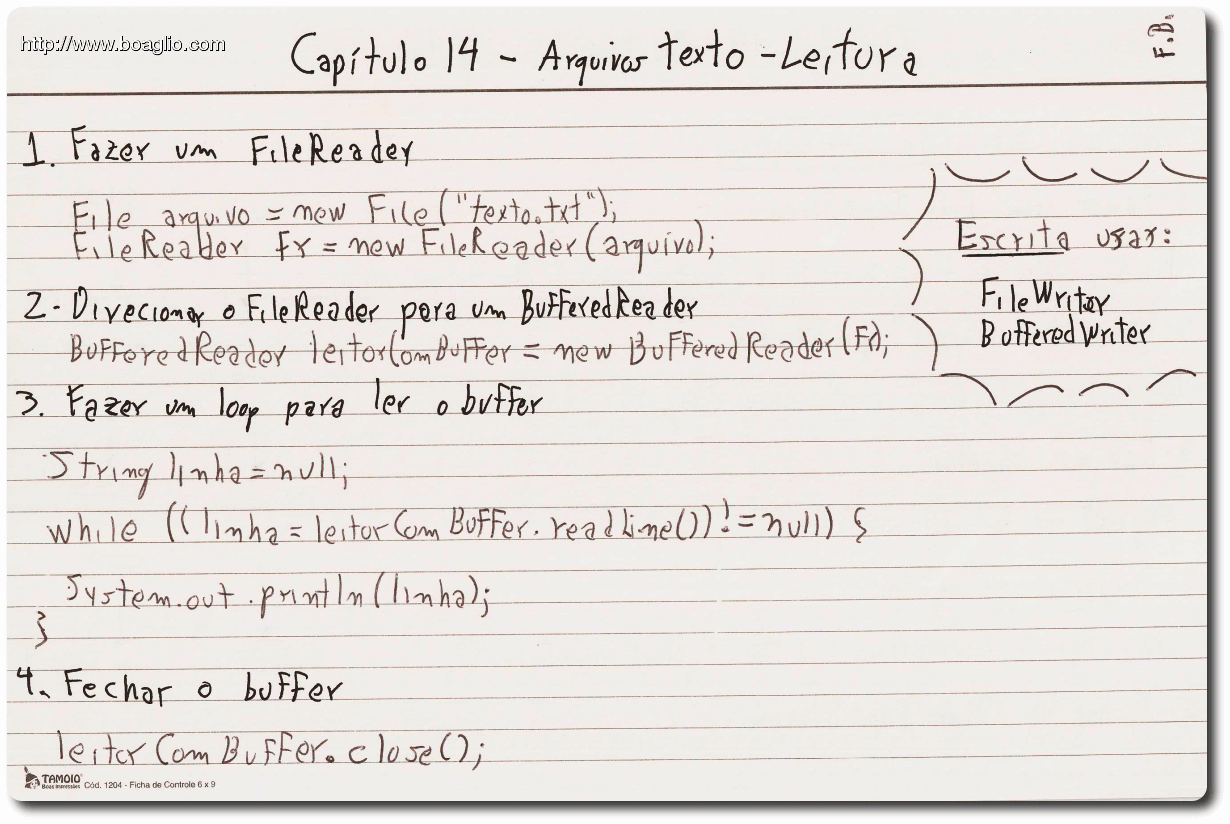 http://www.boaglio.com
F.B.
Capítulo 14 - Arquivos texto - Leitura
1. Fazer um FileReader
File arquivo = new File("texto.txt");
FileReader fr = new FileReader(arquivo);
2- Direcionar o FileReader para um BufferedReader
BufferedReader leitorComBuffer = new BufferedReader(Fr);
3. Fazer um loop para ler o buffer
String linha = null;
while ((linha = leitorComBuffer.readLine()) != null) {
System.out.println(linha);
}
4. Fechar o buffer
leitorComBuffer.close();
Escrita usar:
FileWriter
BufferedWriter
TAMOIO
Boas impressões
Cód. 1204 - Ficha de Controle 6 x 9